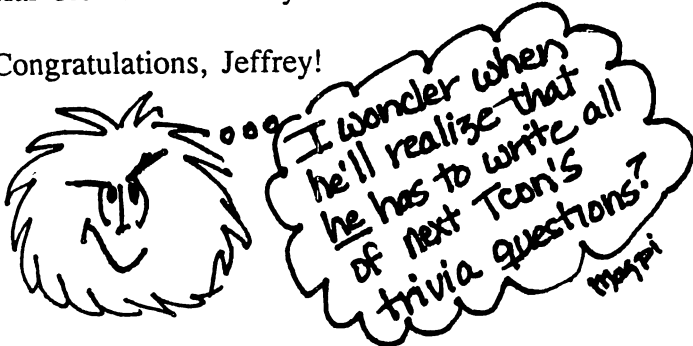 Congratulations, Jeffrey!
I wonder when
he'll realize that
he has to write all
of next Tcon's
trivia questions?
Magpi